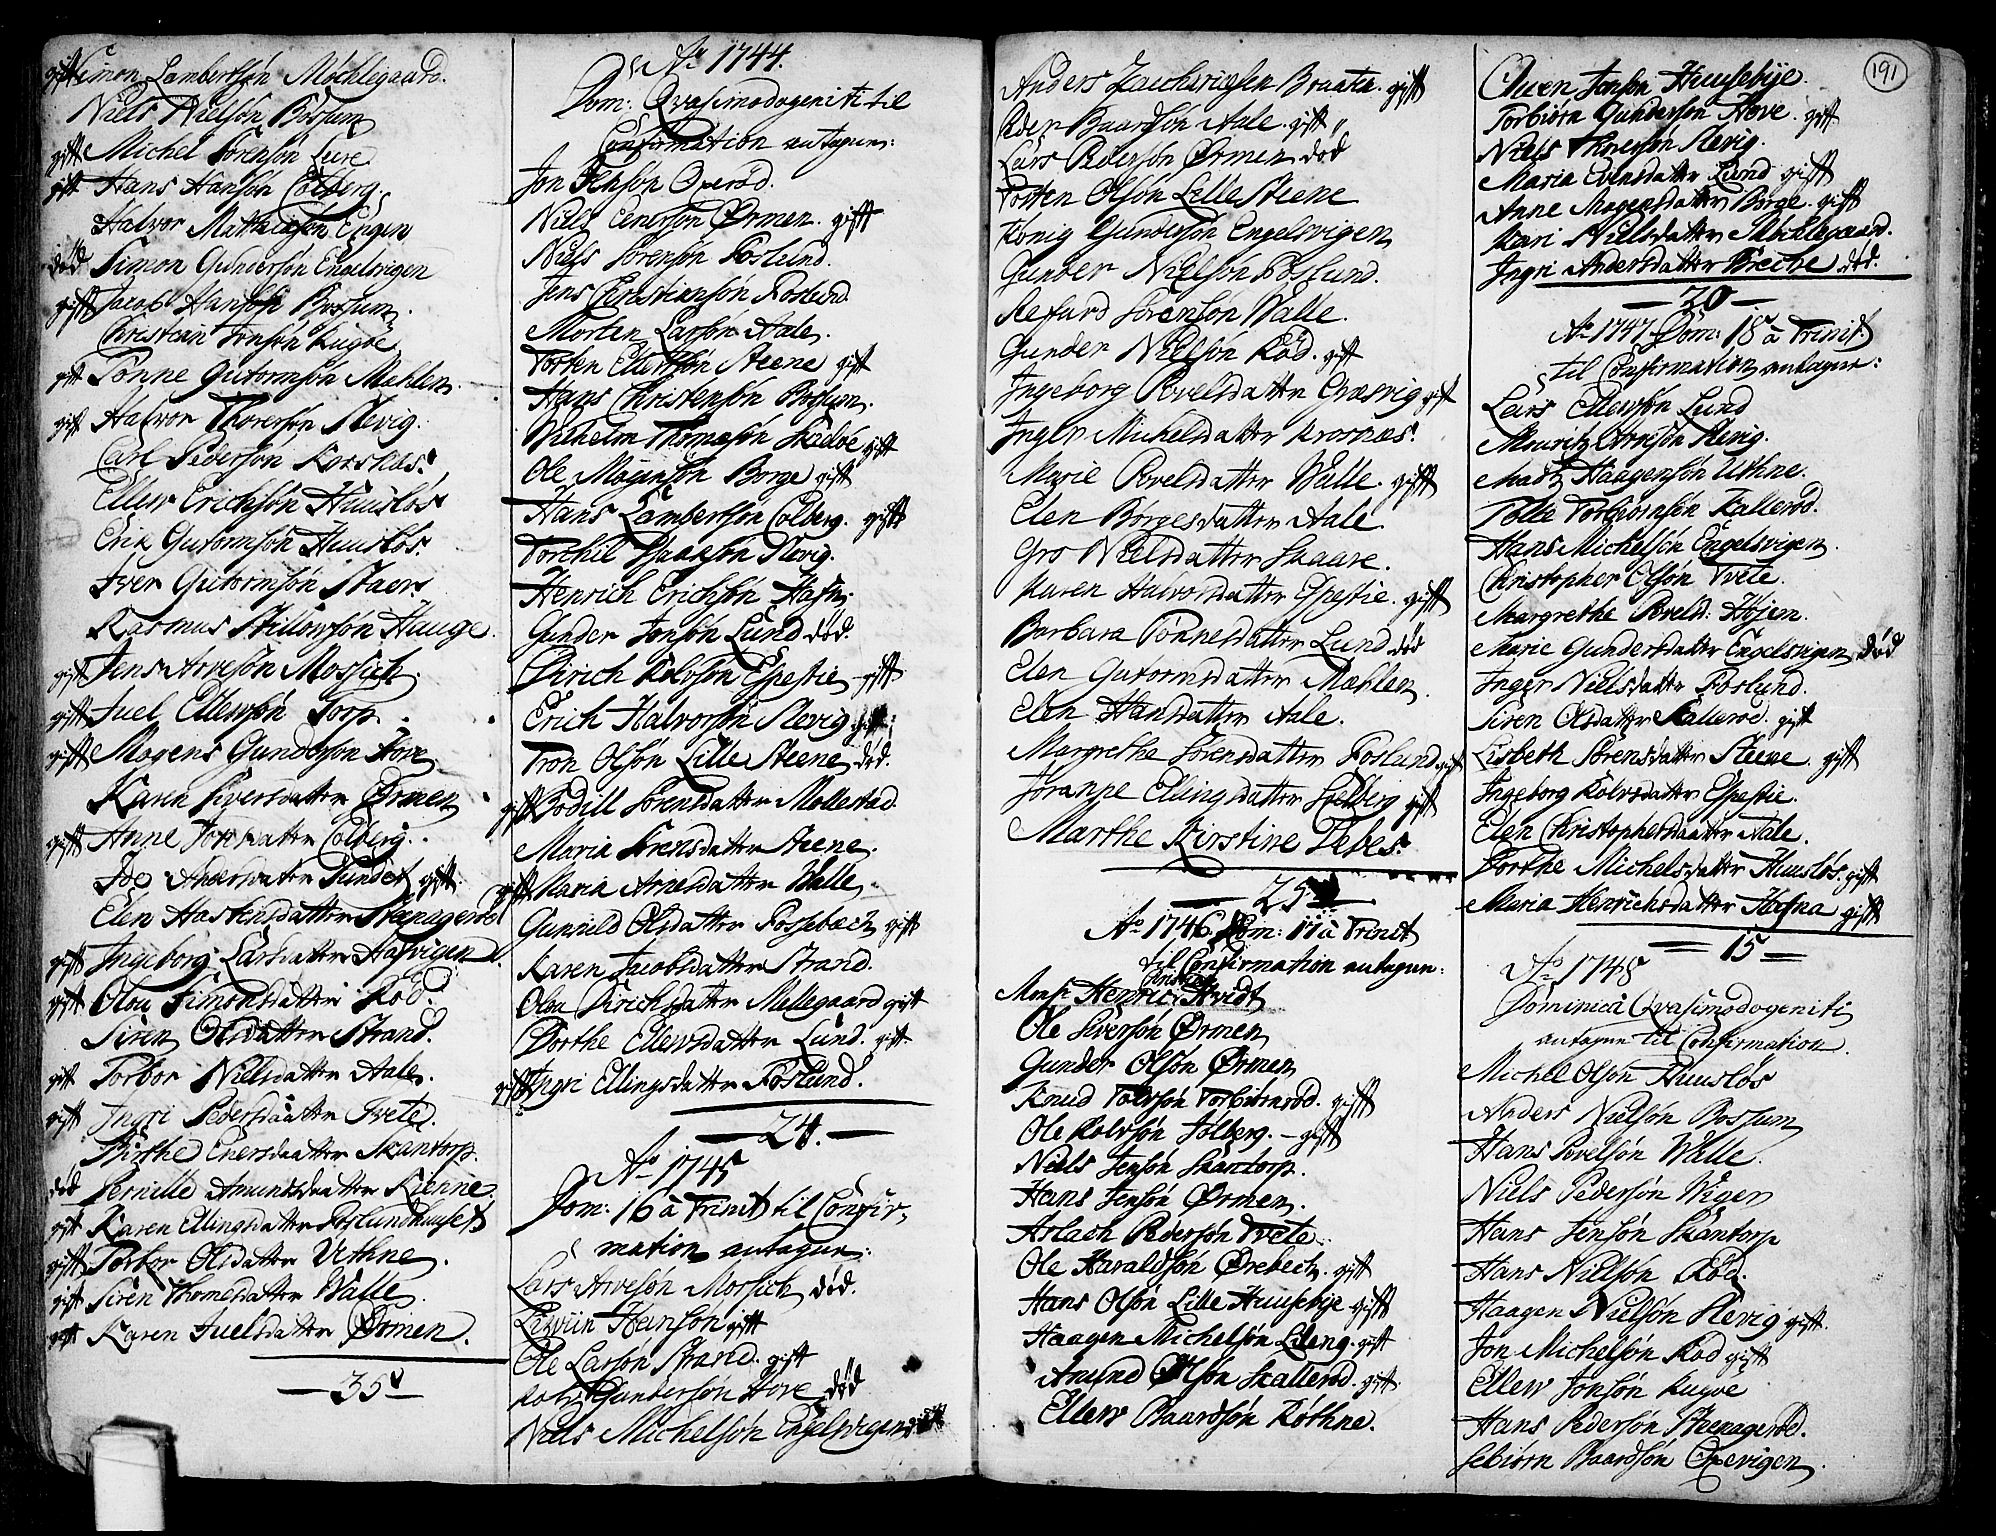 gift Simon Lambertsön Möchlegaard.
Niels Nielsön Bossum
gift Michel Sörensön Lere
gift Hans Hansön Colberg.
Halvor Mathiasön Engen
död Simon Gundersön Engelsvigen
gift Jacob Hansön Bossum.
Christian Jonsön Kugöe
gift Tönne Gutormsön Mæhlen.
gift Halvor Thoresön Slevig.
Carl Pedersön Korsnæs.
Ellew Erichsön Huuslös
Erik Gutormsön Huuslös.
Iver Gutormsön
Rasmus Hauge.
gift Jens Arvesön Mossich.
gift Juel Ellewsön Torp.
gift Mogens Gundersön Hove
Karen Siversdatter Ørmen
gift Anne datter Colberg.
Andersdatter gift.
Elen datter Steenageröd
gift Ingeborg Larsdatter Hafvigen.
gift Olou Simonsdatter Röd.
Siren Olsdatter Strand.
gift Torbor Nielsdatter Aale.
gift Ingri Pedersdaatter Tvete.
Birthe Enersdaatter Skantorp.
död Pernille Amundsdaatter Kienne.
gift Karen Ellingsdatter Foslundhuuset
gift Torbor Olsdatter Uthne.
gift Siren Thomesdatter Walle.
gift Karen Juelsdatter Ørmen.
— 35 —
Ao 1744.
Dom: Qvasimodogeniti til
Confirmation antagne:
Jon Jensön Oxeröd.
Niels Enersön Ørmen. gift
Niels Sörensön Foslund.
Jens Christiansön Foslund.
Morten Larsön Aale.
Torsten Ellewsön Steene gift
Hans Christensön Bossum.
Wilhelm Thomesön Kadöe gift
Ole Mogensön Borge gift
Hans Lambertsön Colberg. gift
Torchil Slevig.
Henrich Erichsön Hafn.
Gunder Jonsön Lund död.
Dirich Rolvsön Espestie gift
Erich Halvorsön Slevig gift
Tron Olsön Lille Steene död.
gift Bodill Sörensdatter Mollestad.
Maria Sörensdatter Steene.
gift Maria Arnesdatter Walle.
Gunnild Olsdatter Fossebech gift
Karen Jacobsdatter Strand.
Olou Dirichsdatter Mellegaard gift
Dorthe Ellewsdatter Lund. gift
gift Ingri Ellingsdatter Foslund.
— 24. —
Ao 1745
Dom: 16 à Trinit til Confir-
mation antagne:
Lars Arvesön Mossich död.
Hansön gift
Ole Larsön Strand. gift
Rolv Gundersön Hove död
Niels Michelsön Engelsvigen
Anders Zachariesen Braata. gift
Peder Baardsön Aale. gift
Lars Pedersön Ørmen död
Torsten Olsön Lille Steene
König Gundersön Engelsvigen
Gunder Nielsön Foslund.
Refsard Sörensön Walle.
Gunder Nielsön Röd. gift
Ingeborg Povelsdatter Græsvig gift
Inger Michelsdatter Krosnæs.
Marie Povelsdatter Walle. gift
Elen Börgesdatter Aale
Gro Nielsdatter Skaare.
Karen Halvorsdatter Espestie. gift
Barbara Tönnesdatter Lund död
Elen Gutormsdatter Mæhlen.
Elen Hansdatter Aale.
Margrethe Sörensdatter Foslund gift
Joranne Ellingsdatter Solberg gift
Marthe Kirstine Tebes.
— 25 —
Ao 1746. Dom: 11 à Trinit
til Confirmation antagne:
Monsr Henric Christian Hvidt
Ole Siversön Ørmen
Gunder Olsön Ørmen
Knud Tolvsön Torbiörnröd. gift
Ole Rolvsön Solberg. – gift
Niels Jensön Skantorp.
Hans Jensön Ørmen.
Aslach Pedersön Tvete.
Ole Haraldsön Ørebech. gift
Hans Olsön Lille Huusebye gift
Haagen Michelsön Lileng. gift
Amund Olsön Skalleröd. gift
Ellew Baardsön Röthne.
191
Owen Jonsön Huusebye.
Torbiörn Gundersön Hove. gift
Niels Thoresön Slevig.
Maria Evensdatter Lund gift
Anne Mogensdatter Borge. gift
Kari Nielsdatter Möchlegaard.
Ingri Andersdatter Breche död.
— 20 —
Ao 1747. Dom: 18 à Trinit.
til Confirmation antagne:
Lars Ellewsön Lund
Mouritz Arnesön Slevig.
Mads Haagensön Uthne.
Tolle Torbiörnsön Kalleröd.
Hans Michelsön Engelsvigen.
Christopher Olsön Tvete.
Margrethe Povelsd: Höjen.
Marie Gundersdatter Engelsvigen död
Inger Nielsdatter Foslund.
Siren Olsdatter Skalleröd. gift
Lisbeth Sörensdatter Steene. gift
Ingeborg Rolvsdatter Espestie.
Elen Christophersdaatter Aale.
Dorthe Michelsdatter Huuslös. gift
Maria Henrichsdatter Hafna gift
— 15 —
Ao 1748
Dominica Qvasimodogeniti
antagne til Confirmation.
Michel Olsön Huuslös
Anders Nielsön Bossum
Hans Povelsön Walle.
Niels Pedersön Wigen
Hans Jensön Skantorp
Hans Nielsön Röd.
Haagen Nielsön Slevig gift.
Jon Michelsön Röd gift
Ellew Jonsön Kugöe
Hans Pedersön Steenageröd.
Sebiörn Baardsön Oxevigen.